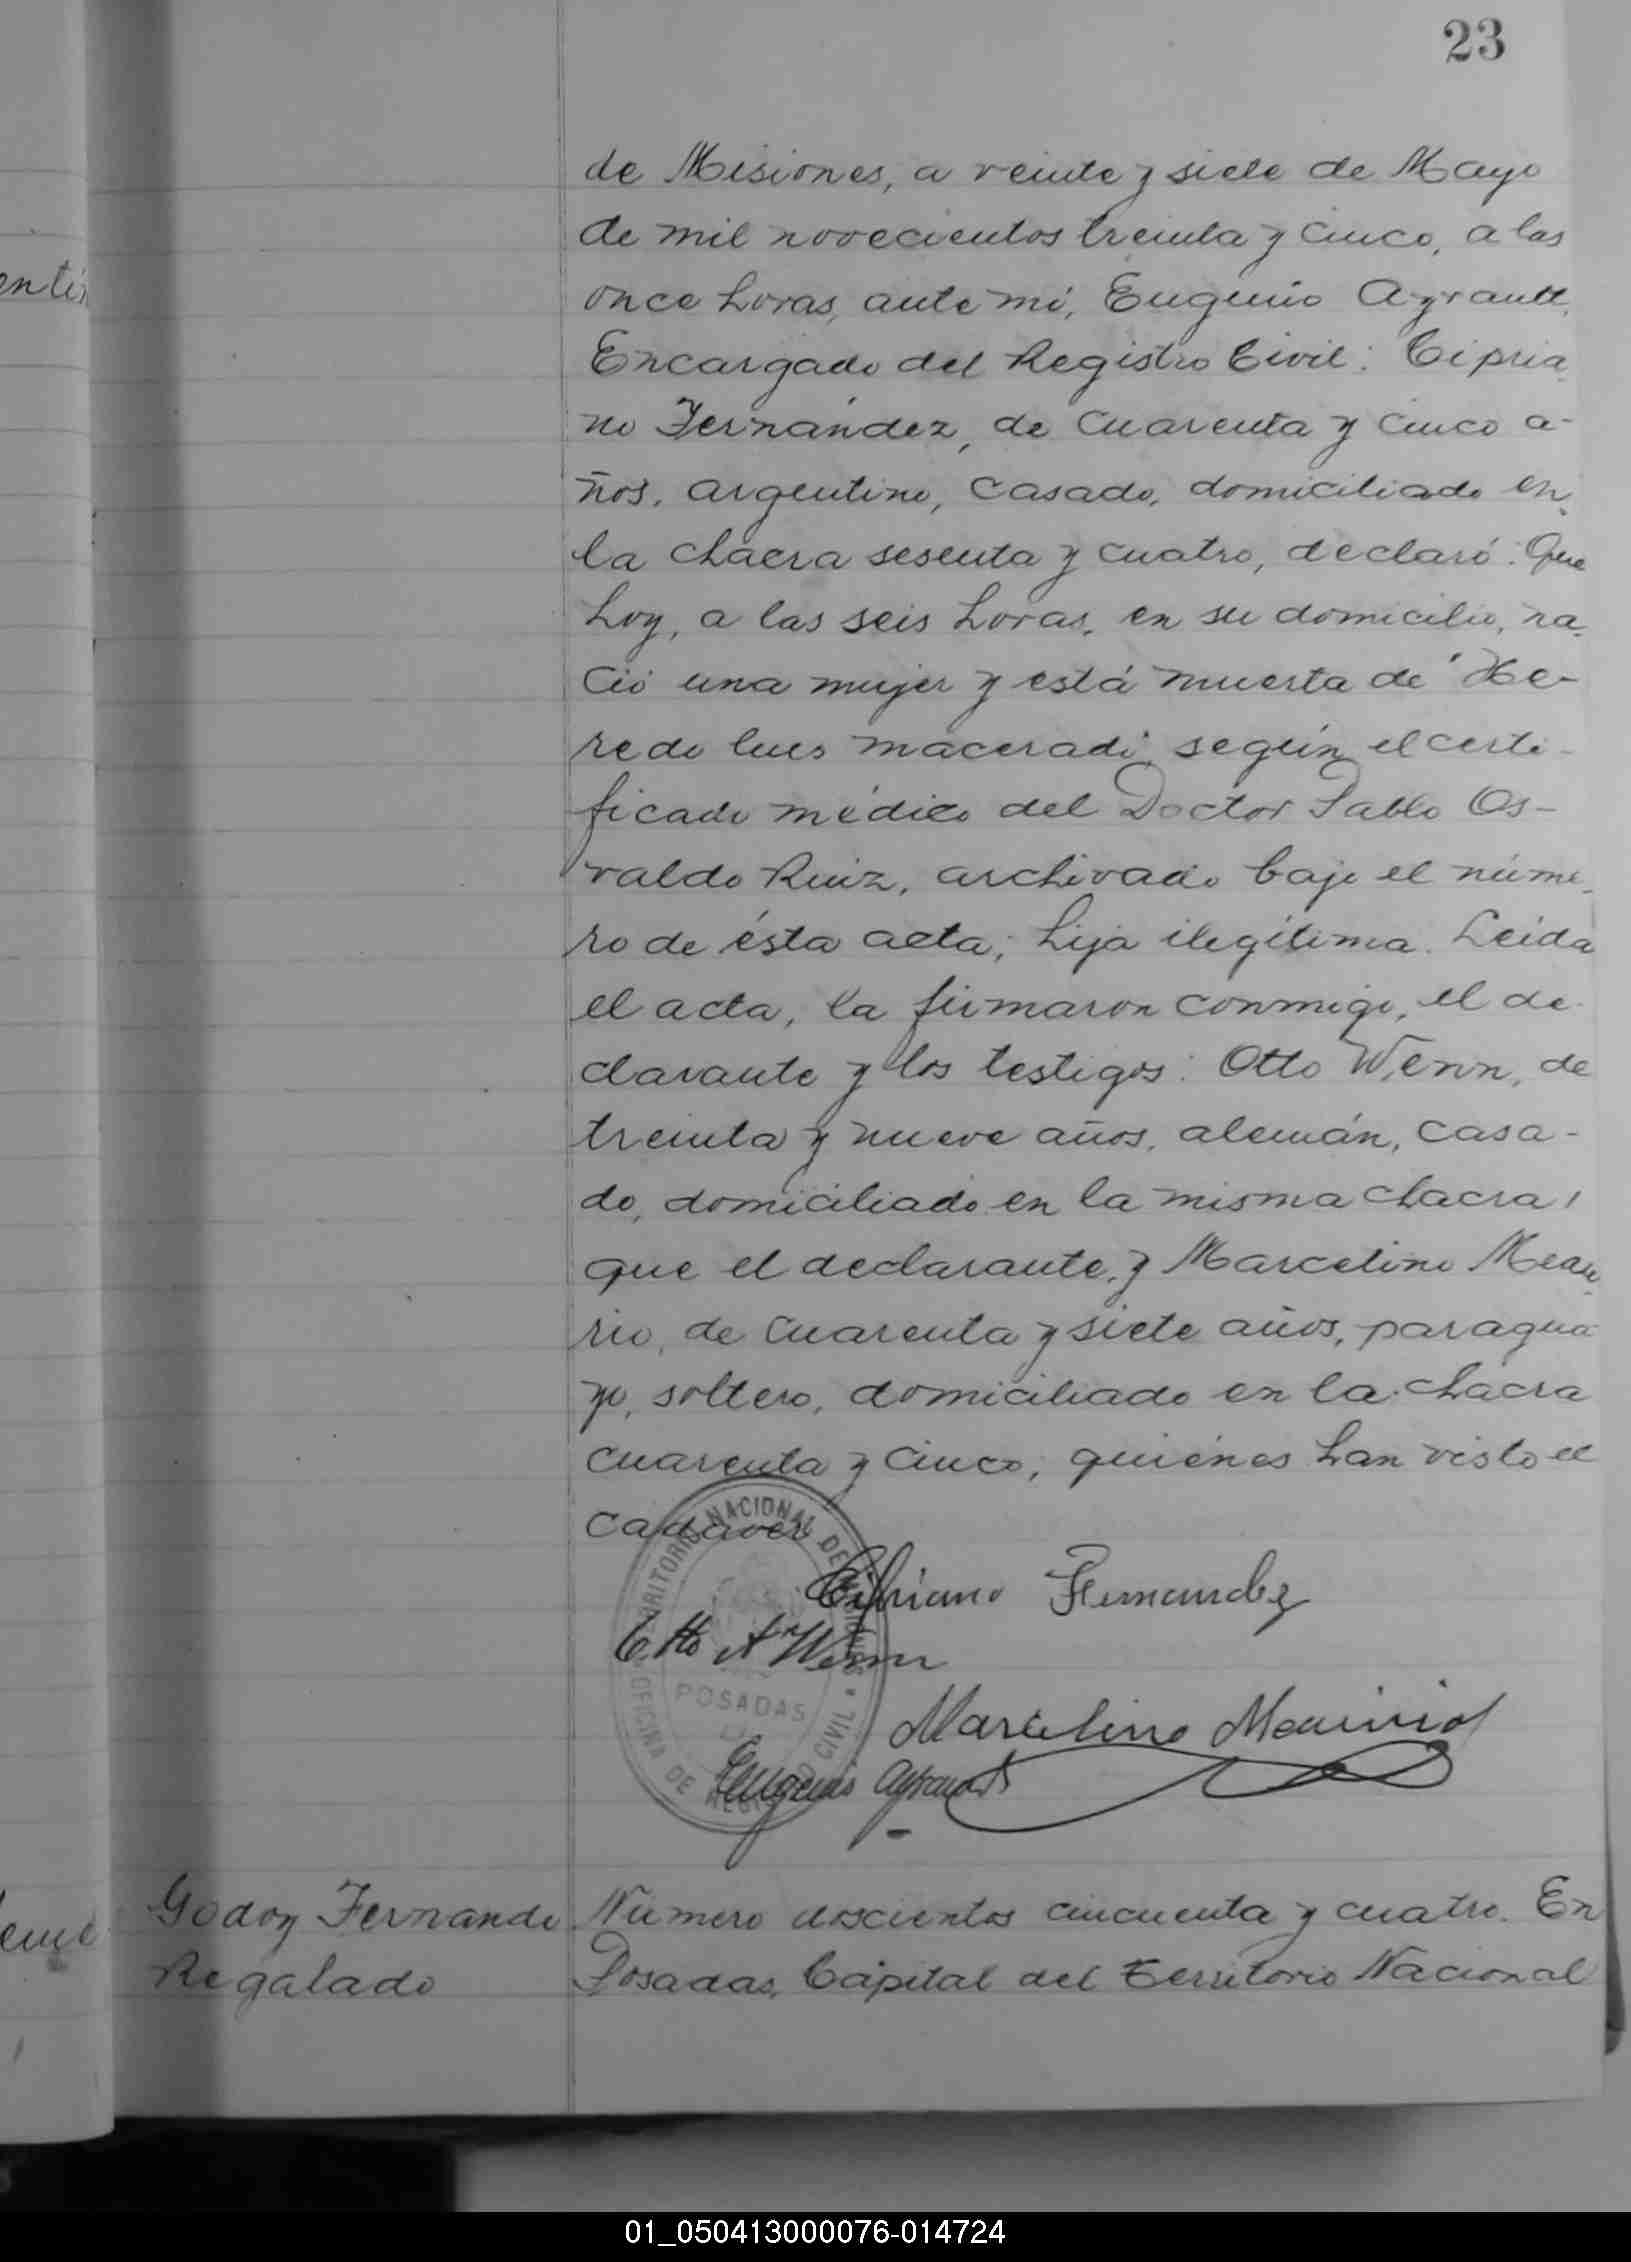 23
de Misiones, a veinte y siete de Mayo
de mil novecientos treinta y cinco, a las
once horas, ante mi, Eugenio Ayrault,
Encargado del Registro Civil: Cipria
no Fernández, de cuarenta y cinco a-
ños, argentino, casado, domiciliado en
la chacra sesenta y cuatro, declaró: Que
hoy, a las seis horas, en su domicilio, na-
ció una mujer y está muerta de "He-
redo lues maceradi" según el certi-
ficado médico del Doctor Pablo Os-
valdo Ruiz, archivado bajo el núme-
ro de ésta acta; hija ilegítima. Leida
el acta, la firmaron conmigo, el de-
clarante y los testigos: Otto Wenn, de
treinta y nueve años, alemán, casa-
do, domiciliado en la misma chacra
que el declarante, y Marcelino
rio, de cuarenta y siete años, paragua
yo, soltero, domiciliado en la chacra
cuarenta y cinco, quiénes han visto el
cadáver
Cipriano Fernandez
Otto A Wenn
Marcelino
Eugenio Ayrault
TERRITORIO NACIONAL DE MISIONES
OFICINA DE REGISTRO CIVIL
POSADAS
Godoy Fernando
Regalado
Número doscientos cincuenta y cuatro. En
Posadas, Capital del Territorio Nacional
enti
01_050413000076-014724